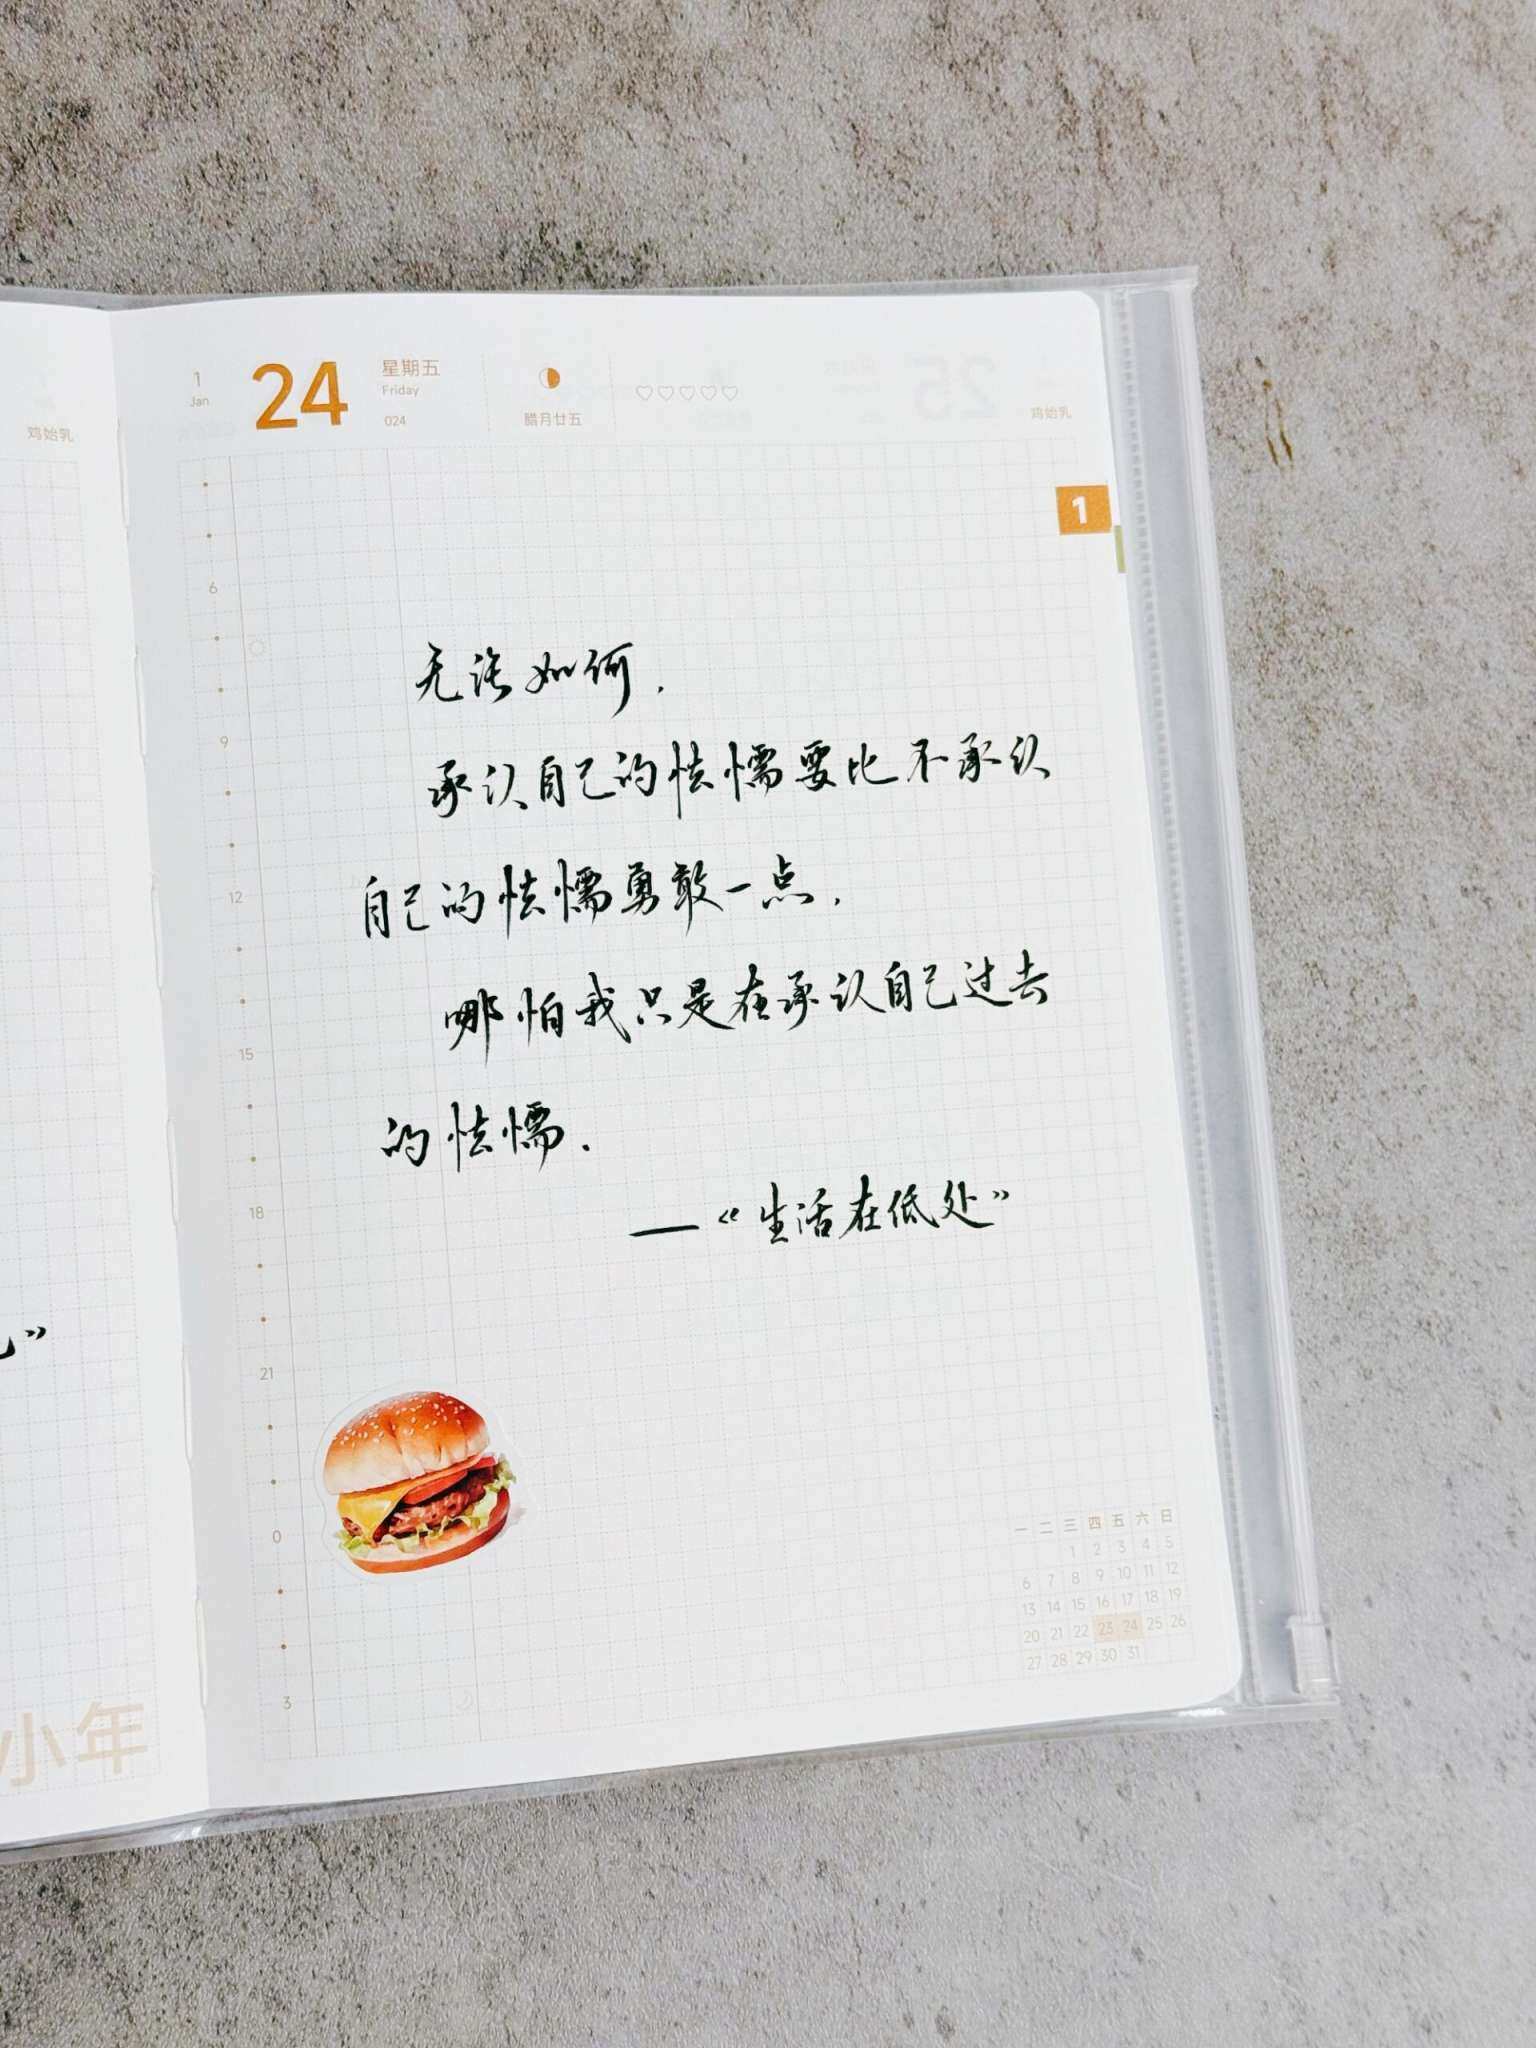 鸡始乳
”
小年
1
Jan
24
星期五
Friday
024
腊月廿五
25
鸡始乳
1
6
9
12
15
18
21
0
3
无论如何，
承认自己的怯懦要比不承认
自己的怯懦勇敢一点，
哪怕我只是在承认自己过去
的怯懦．
—《生活在低处》
一 二 三 四 五 六 日
1 2 3 4 5
6 7 8 9 10 11 12
13 14 15 16 17 18 19
20 21 22 23 24 25 26
27 28 29 30 31